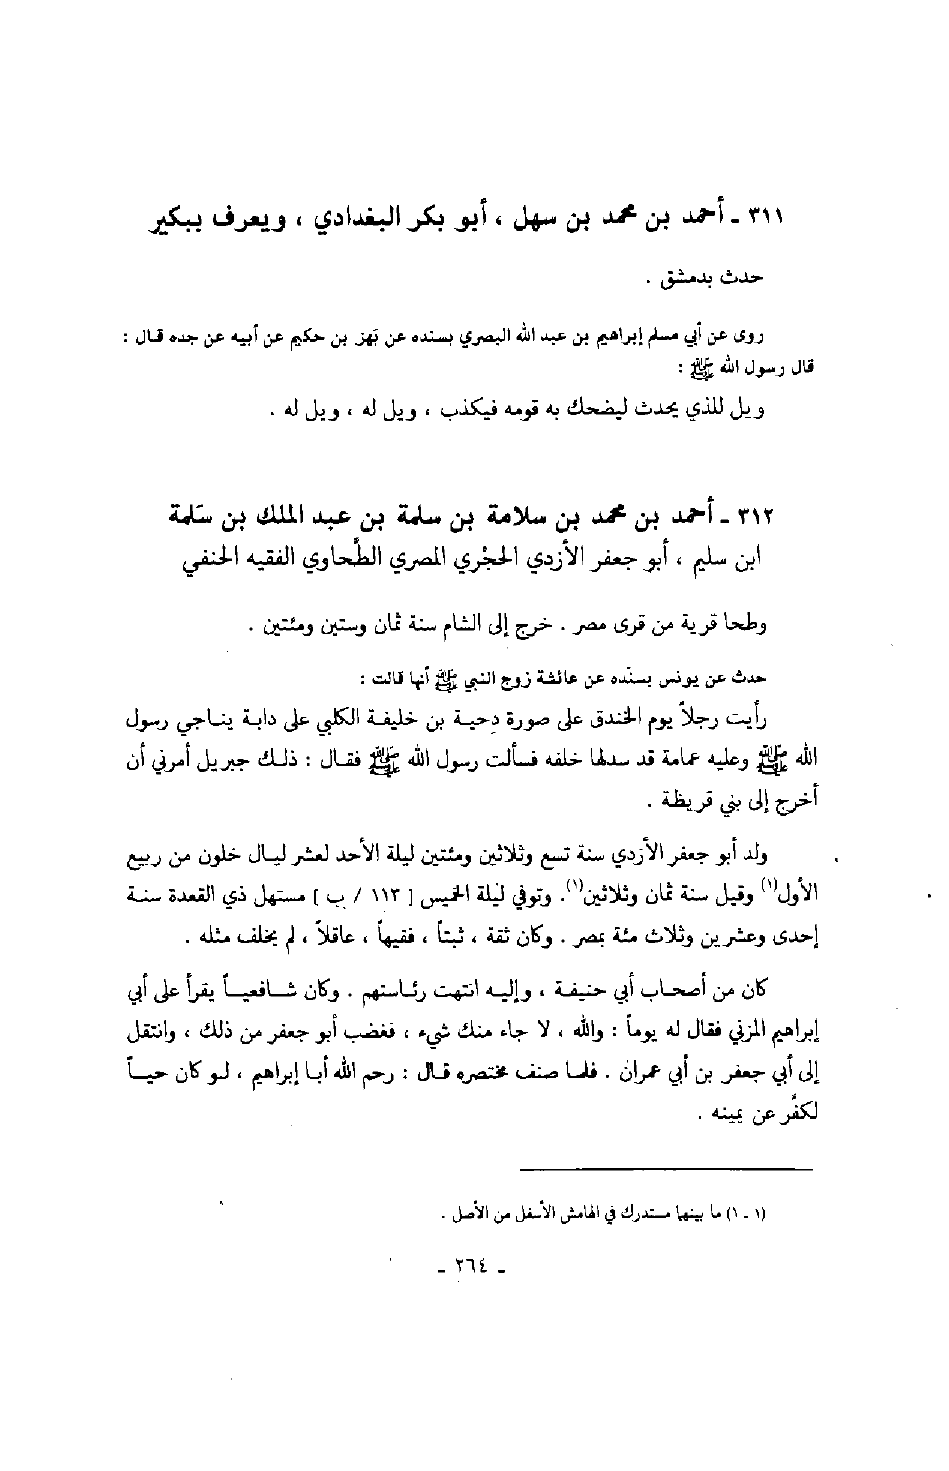 ٣١١ ـ أحمد بن محمد بن سهل ، أبو بكر البغدادي ، ويعرف ببكير
حدث بدمشق .
روى عن أبي مسلم إبراهيم بن عبد الله البصري بسنده عن بَهز بن حكيم عن أبيه عن جده قال :
قال رسول الله ﷺ :
ويل للذي يحدث ليضحك به قومه فيكذب ، ويل له ، ويل له .
٣١٢ ـ أحمد بن محمد بن سلامة بن سلمة بن عبد الملك بن سَلمة
ابن سليم ، أبو جعفر الأزدي الحجْري المصري الطَّحاوي الفقيه الحنفي
وطحا قرية من قرى مصر . خرج إلى الشام سنة ثمان وستين ومئتين .
حدث عن يونس بسنَده عن عائشة زوج النبي ﷺ أنها قالت :
رأيت رجلاً يوم الخندق على صورة دِحية بن خليفة الكلبي على دابة يناجي رسول
الله ﷺ وعليه عمامة قد سدلها خلفه فسألت رسول الله ﷺ فقال : ذلك جبريل أمرني أن
أخرج إلى بني قريظة .
ولد أبو جعفر الأزدي سنة تسع وثلاثين ومئتين ليلة الأحد لعشر ليال خلون من ربيع
الأول(١) وقيل سنة ثمان وثلاثين(١). وتوفي ليلة الخميس [ ١١٣ / ب ] مستهل ذي القعدة سنة
إحدى وعشرين وثلاث مئة بمصر . وكان ثقة ، ثبتاً ، فقيهاً ، عاقلاً ، لم يخلف مثله .
كان من أصحاب أبي حنيفة ، وإليه انتهت رئاستهم . وكان شافعياً يقرأ على أبي
إبراهيم المزني فقال له يوماً : والله ، لا جاء منك شيء ، فغضب أبو جعفر من ذلك ، وانتقل
إلى أبي جعفر بن أبي عمران . فلما صنف مختصره قال : رحم الله أبا إبراهيم ، لو كان حياً
لكفَّر عن يمينه .
(١ ـ ١) ما بينها مستدرك في الهامش الأسفل من الأصل .
ـ ٢٦٤ ـ